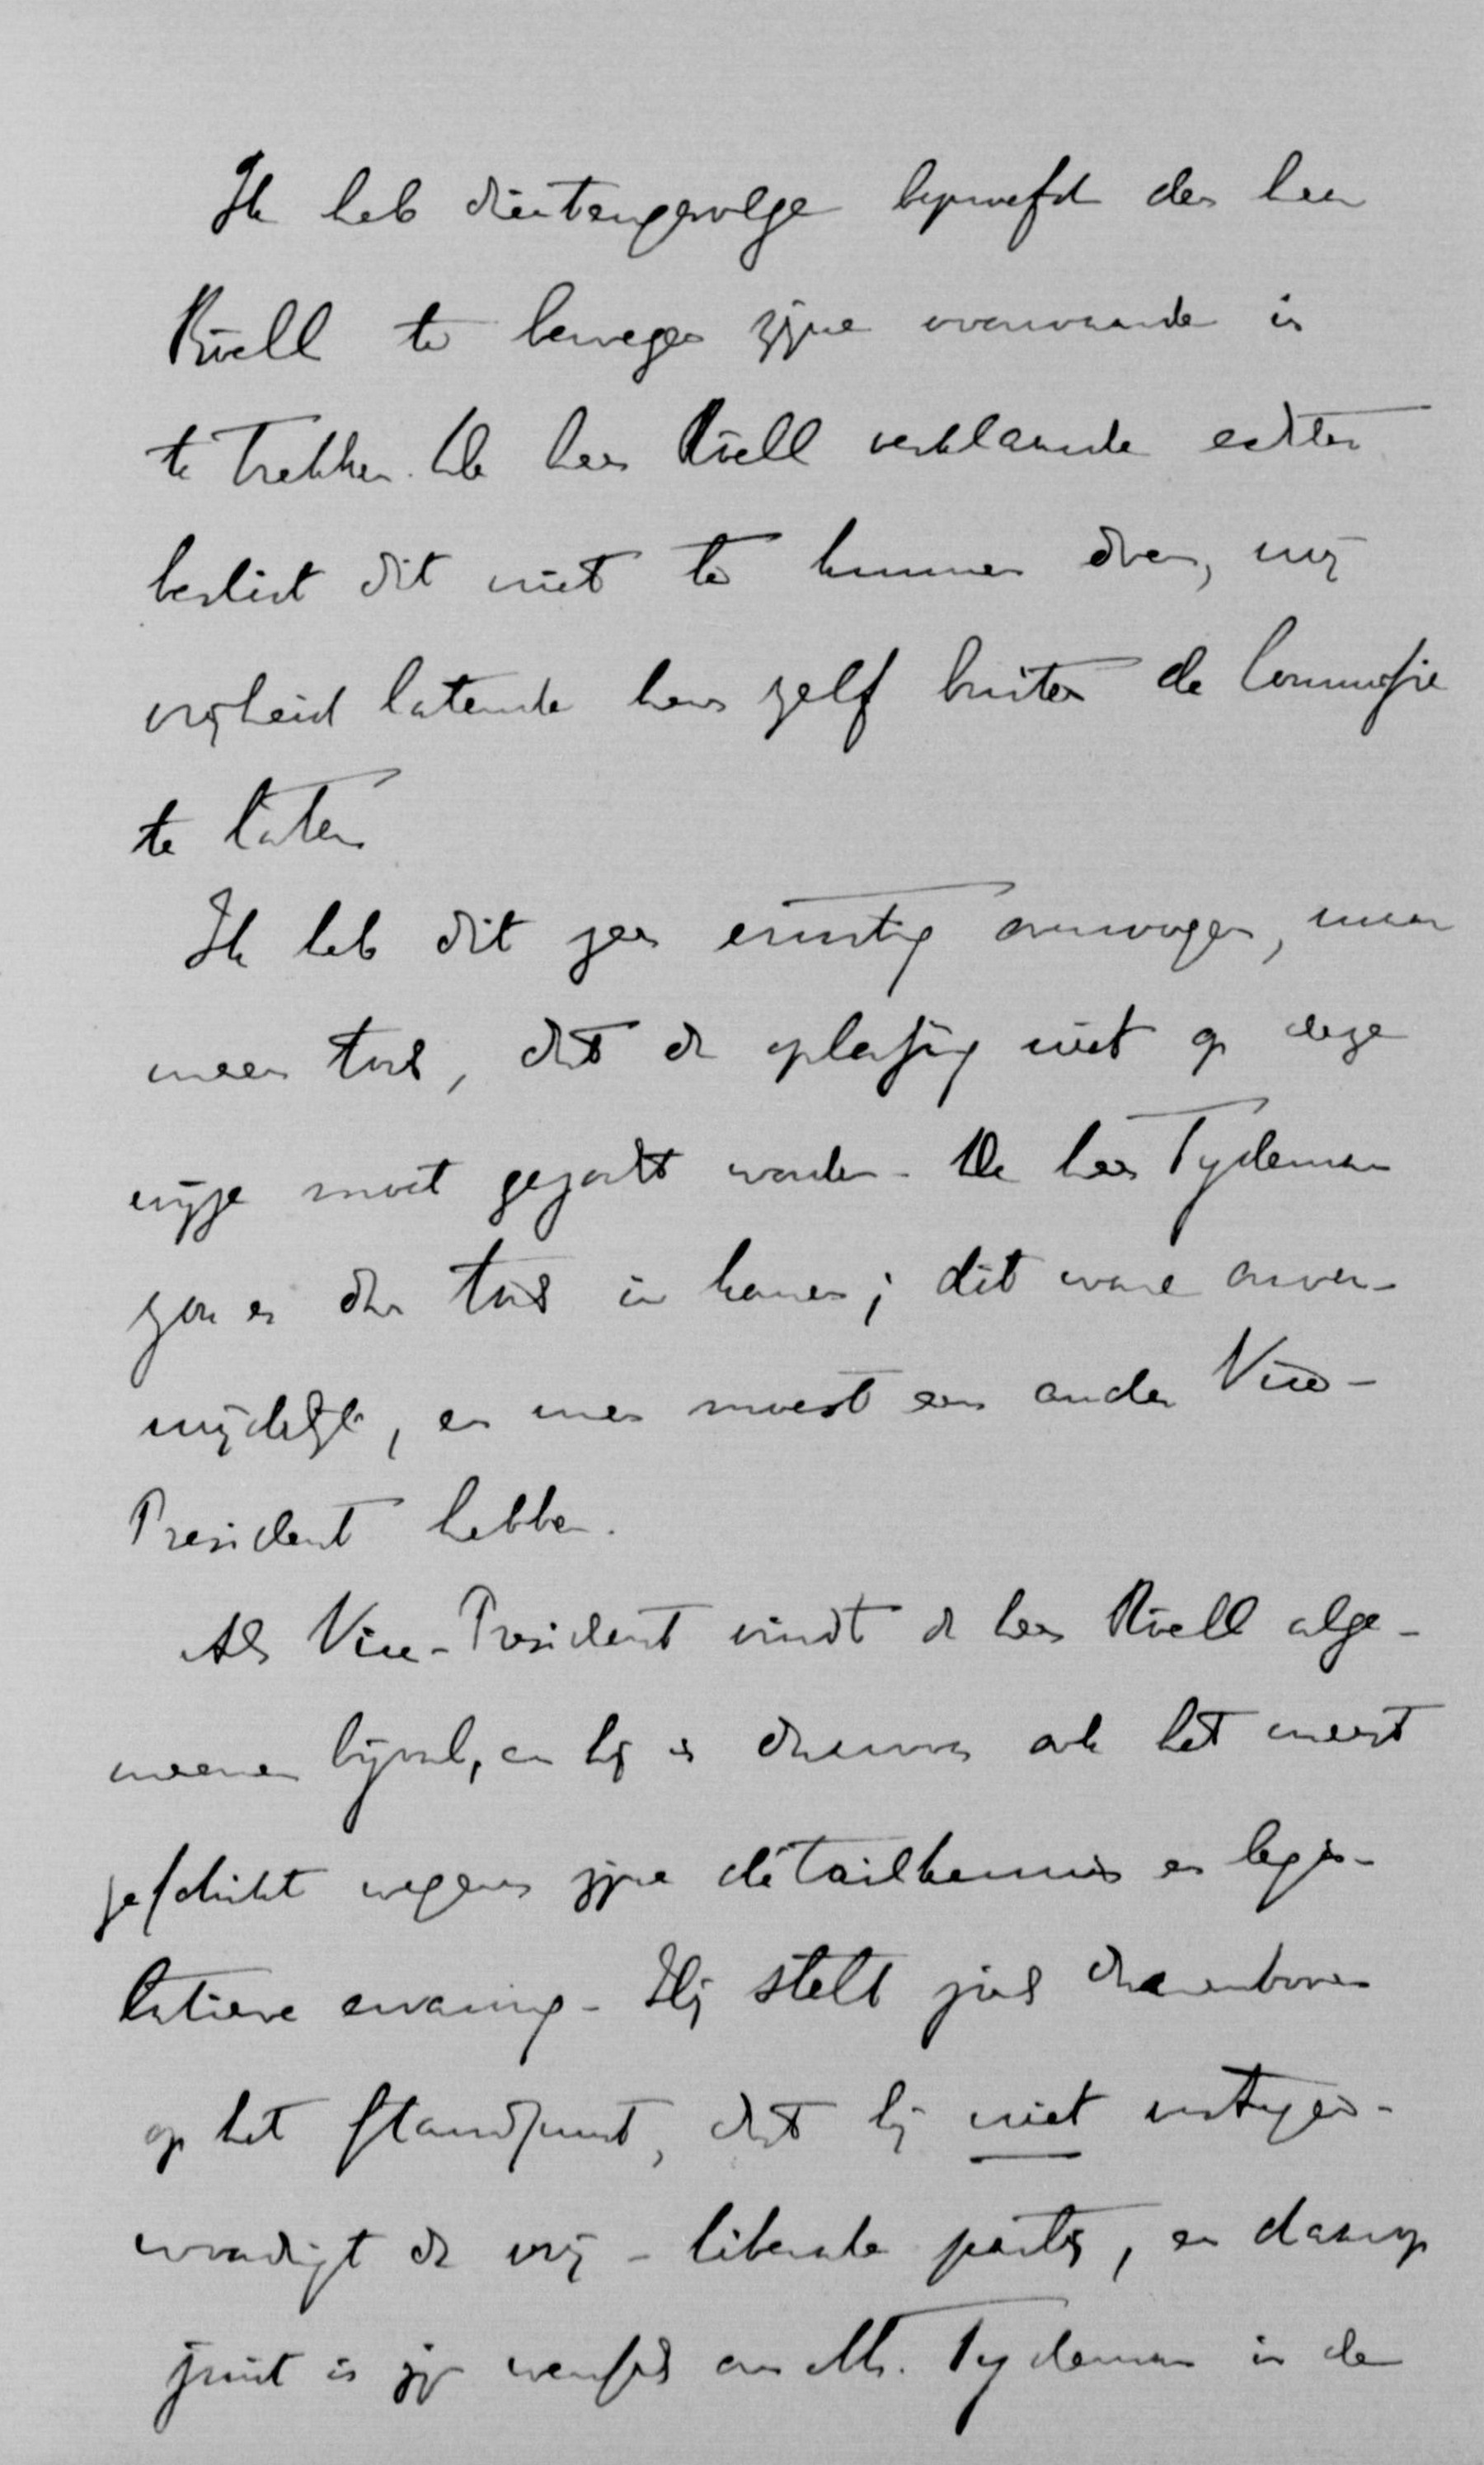 Ik heb dientengevolge beproefd den heer
Röell te bewegen zijne voorwaarde in
te trekken. De heer Röell verklaarde echter
beslist dit niet te kunnen doen, mij
vrijheid latende hem zelf buiten de Commissie
te laten
Ik heb dit zeer ernstig overwogen, maar
meen toch, dat de oplossing niet op deze
wijze moet gezocht worden. De heer Tydeman
zou er dan toch in komen; dit ware onver-
mijdelijk, en men moest een ander Vice-
President hebben.
Als Vice-President vindt de heer Röell alge-
meenen bijval, en hij is daarvoor ook het meest
geschikt wegens zijne détailkennis en legis-
latieve ervaring. Hij stelt zich daarenboven
op het standpunt, dat hij niet vertegen-
woordigt de vrij-liberale partij, en daarop
juist is zijn wensch om Mr. Tydeman in de